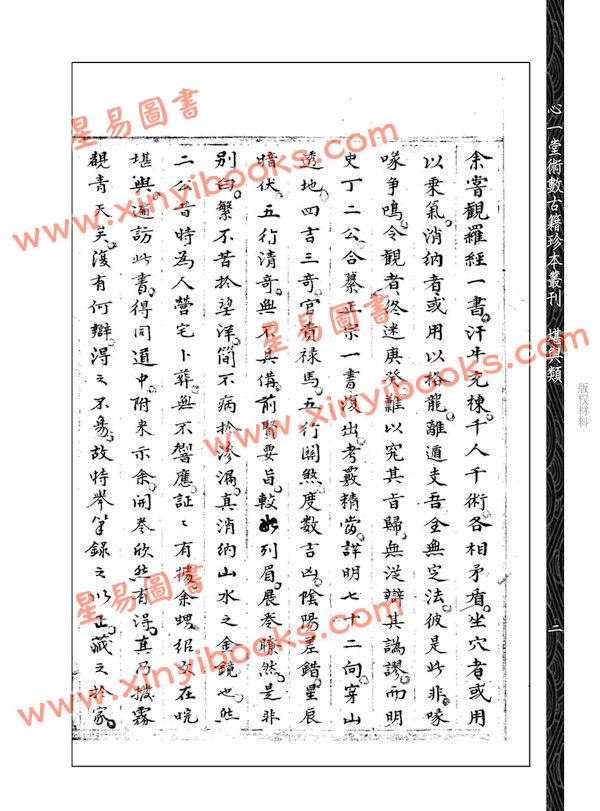 心一堂術數古籍珍本叢刊 堪輿類
二
版权材料
余嘗觀羅經一書汗牛充棟千人千術各相矛盾坐穴者或用
以乘氣消納者或用以格龍離遁支吾全無定法彼是此非喙
喙爭鳴令觀者終迷庚癸難以究其旨歸無從辯其譌謬而明
史丁二公合纂正宗一書復出考覈精當詳明七十二向穿山
透地四吉三奇官貴祿馬五行關煞度數吉凶陰陽差錯星辰
暗伏五行清奇無不具備前賢要旨較此列眉展卷瞭然是非
別曰繁不苦於望洋簡不病於滲漏真消納山水之金鏡也然
二公昔時為人營宅卜葬無不響應証〻有據余甥紹文在晥
堪輿遍訪此書得同道中附來示余開卷欣然有得真乃撥霧
覩青天矣復有何辯得之不易故特舉筆錄之以正藏之於家
星易圖書
www.xinyibooks.com
星易圖書
www.xinyibooks.com
星易圖書
www.xinyibooks.com